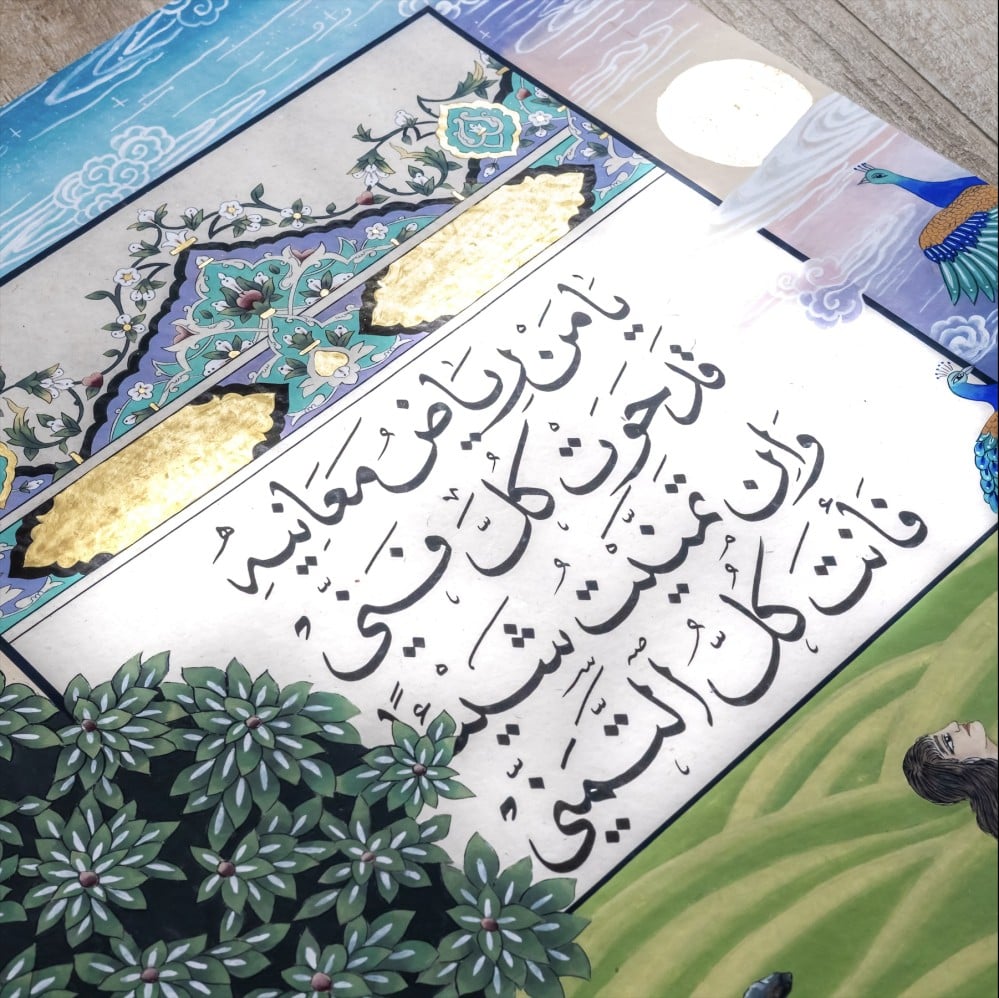 يَا مَنْ رِيَاضُ مَعَانِيهِ
قَدْ حَوَتْ كُلَّ فَنِّي
وَإِن تَمَنَّيْتُ شَيْئًا
فَأَنْتَ كُلُّ ٱلتَّمَنِّي